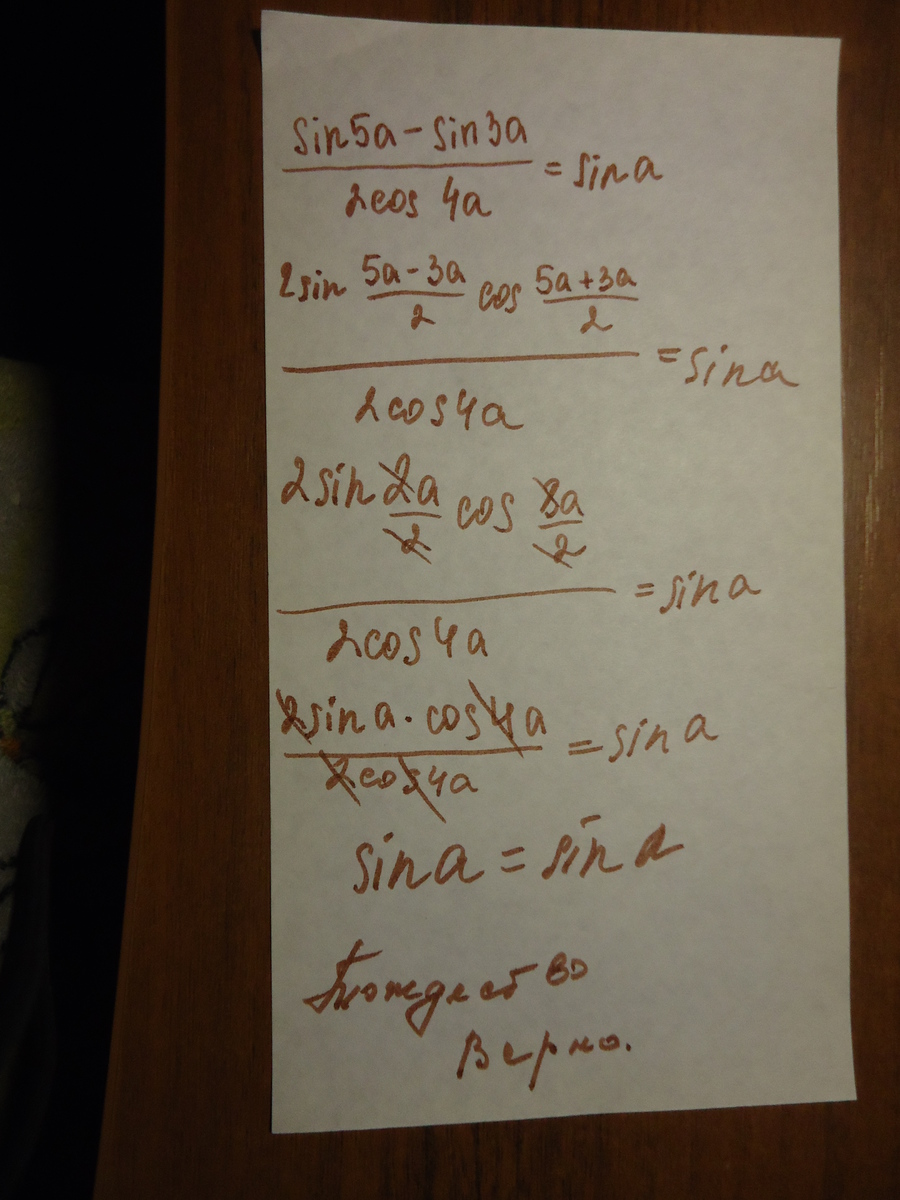 sin5a - sin3a / 2cos 4a = sin a
2sin 5a - 3a / 2 cos 5a + 3a / 2 / 2cos4a = sina
2sin 2a / 2 cos 8a / 2 / 2cos4a = sina
2sin a · cos4a / 2cos4a = sin a
sina = sin a
Тождество
Верно.